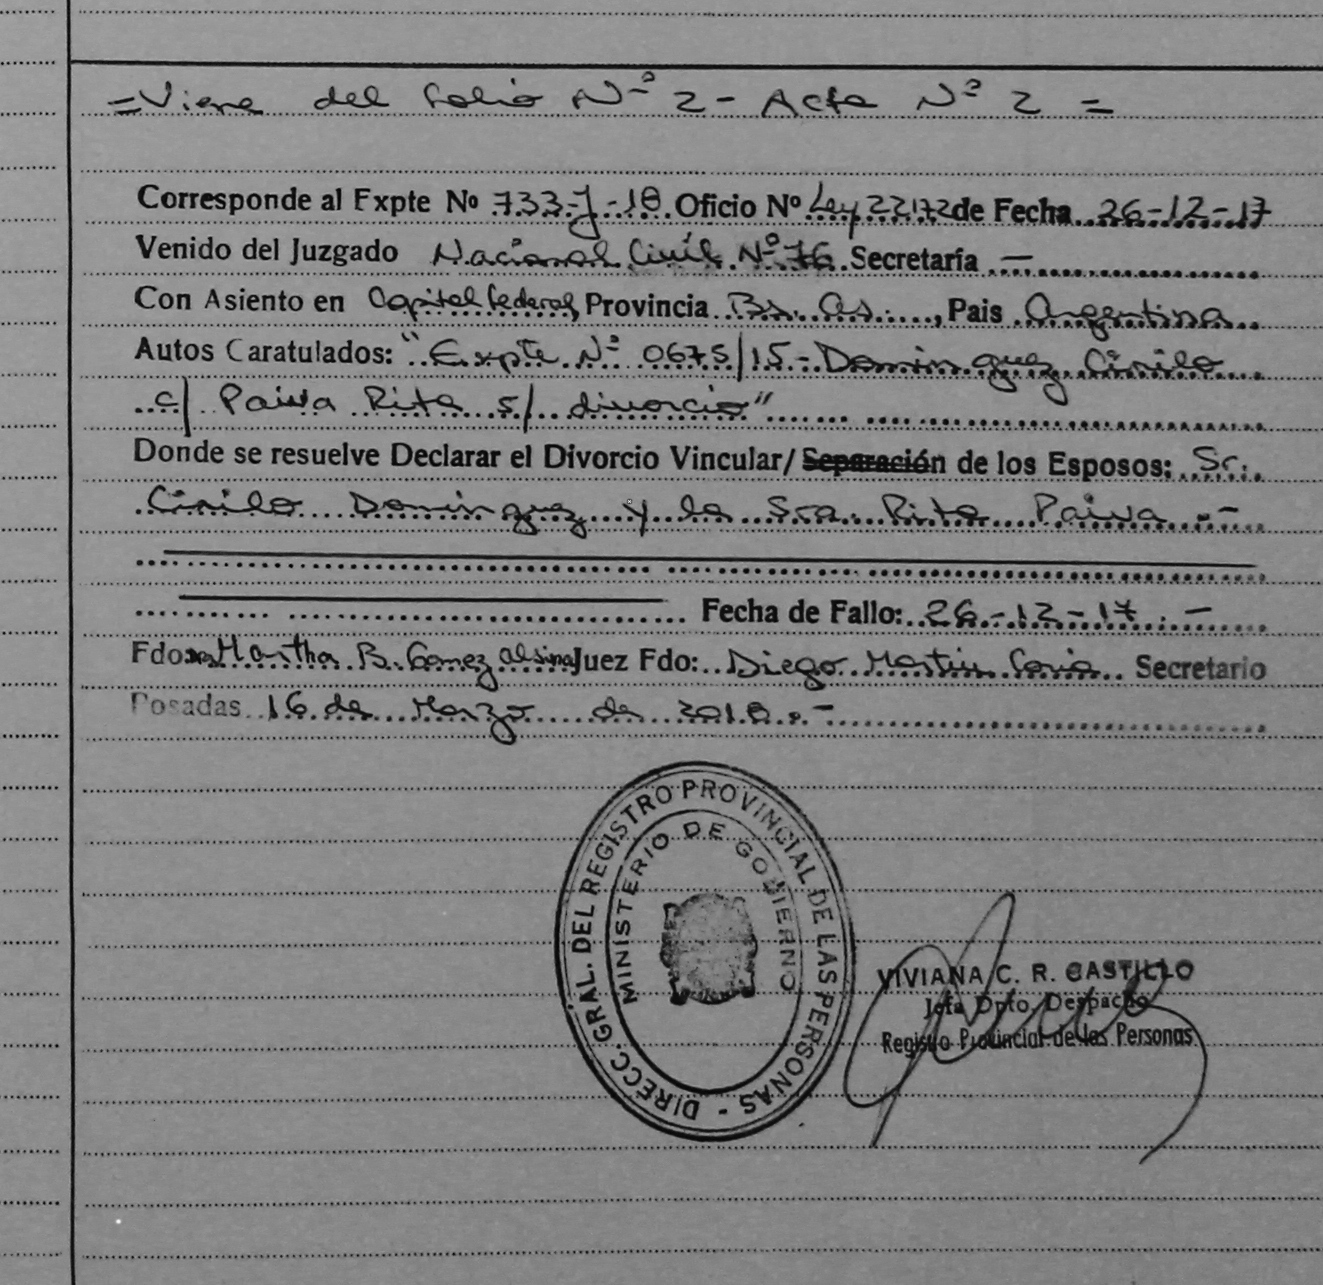 = Viene del folio Nº 2 - Acta Nº 2 =
Corresponde al Expte Nº 733-J-18 Oficio Nº Ley 22172 de Fecha 26-12-17
Venido del Juzgado Nacional Civil Nº 76 Secretaría —
Con Asiento en Capital Federal, Provincia Bs. As., Pais Argentina
Autos Caratulados: "Expte Nº 0675/15 - Dominguez Cirilo
c/ Paiva Rita s/ divorcio"
Donde se resuelve Declarar el Divorcio Vincular/ Separación de los Esposos: Sr.
Cirilo Dominguez y la Sra. Rita Paiva .-
Fecha de Fallo: 26-12-17.-
Fdo Martha B. Gomez Alsina Juez Fdo: Diego Martin Coria Secretario
Posadas 16 de Marzo de 2018.-
DIRECC. GRAL. DEL REGISTRO PROVINCIAL DE LAS PERSONAS -
MINISTERIO DE GOBIERNO
VIVIANA C. R. CASTILLO
Jefa Dpto. Despacho
Registro Provincial de las Personas